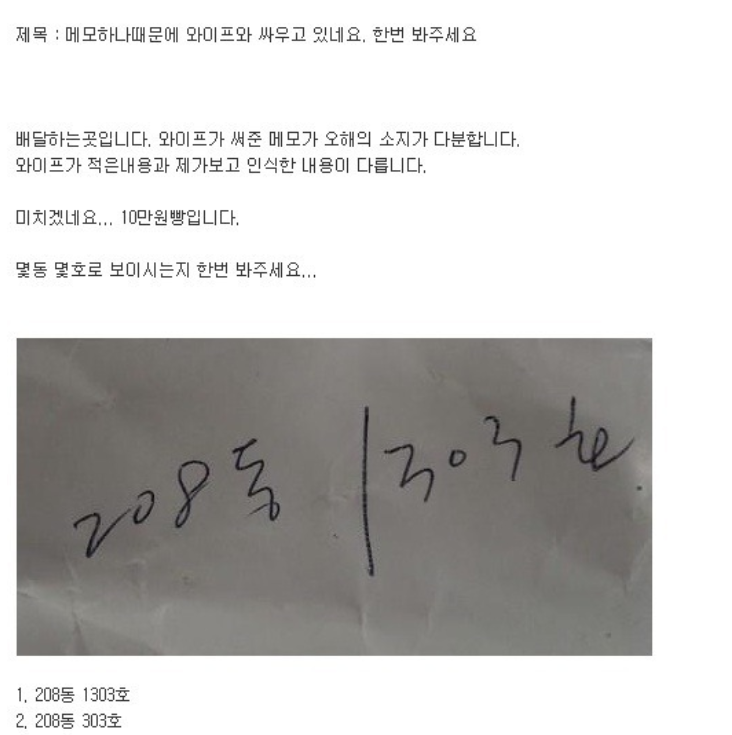 제목 : 메모하나때문에 와이프와 싸우고 있네요. 한번 봐주세요
배달하는곳입니다. 와이프가 써준 메모가 오해의 소지가 다분합니다.
와이프가 적은내용과 제가보고 인식한 내용이 다릅니다.
미치겠네요... 10만원빵입니다.
몇동 몇호로 보이시는지 한번 봐주세요...
208동 | 303호
1. 208동 1303호
2. 208동 303호